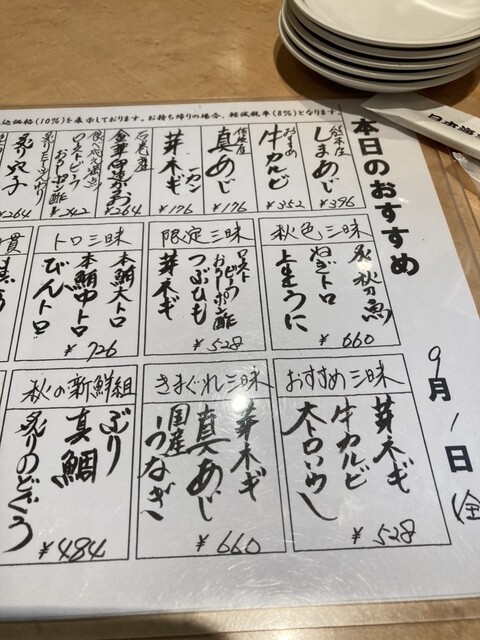 込価格(10%)を表示しております。お持ち帰りの場合、軽減税率(8%)となります。
本日のおすすめ
9月1日(金
熊本産
しまあじ
¥396
おすすめ
牛カルビ
¥352
真あじ
¥176
一カン
芽ネギ
¥176
石巻産
¥264
ローストビーフ
おろしポン酢
¥242
炙り穴子
¥264
秋色三昧
炙り秋刀魚
ねぎトロ
上生うに
¥660
限定三昧
ローストビーフ
おろしポン酢
つぶひも
芽ネギ
¥528
トロ三昧
本鮪大トロ
本鮪中トロ
びんトロ
¥726
貫
おすすめ三昧
芽ネギ
牛カルビ
大トロいわし
¥528
きまぐれ三昧
芽ネギ
真あじ
国産うなぎ
¥660
秋の新鮮組
ぶり
真鯛
炙りのどぐろ
¥484